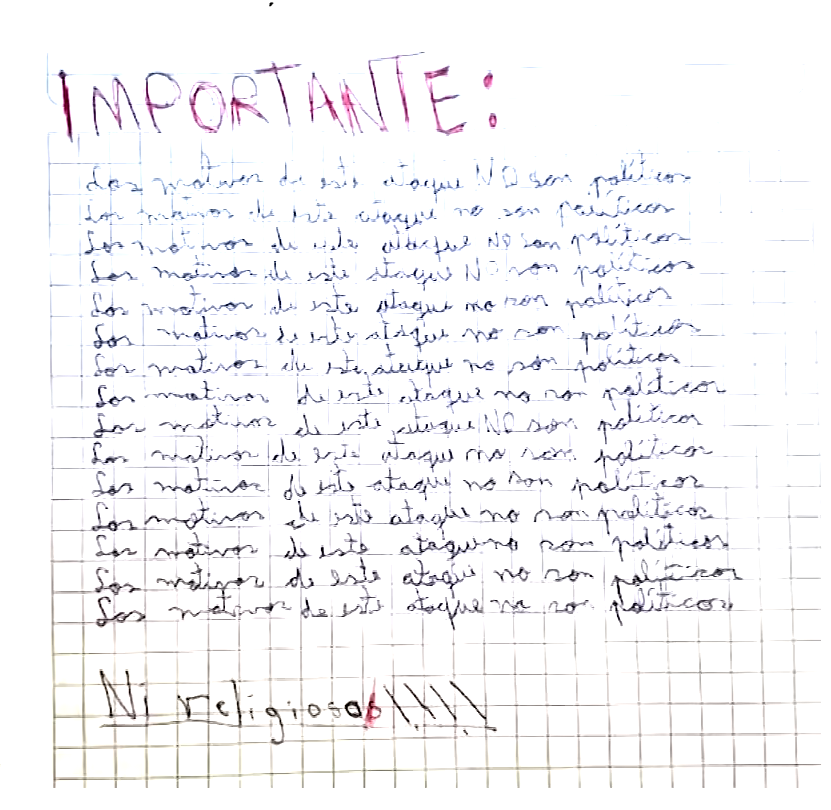 IMPORTANTE:
Los motivos de este ataque NO son políticos
Los motivos de este ataque no son políticos
Los motivos de este ataque NO son políticos
Los motivos de este ataque NO son políticos
Los motivos de este ataque no son políticos
Los motivos de este ataque no son políticos
Los motivos de este ataque no son políticos
Los motivos de este ataque no son politicos
Los motivos de este ataque NO son politicos
Los motivos de este ataque no son políticos
Los motivos de este ataque no son políticos
Los motivos de este ataque no son politicos
Los motivos de este ataque no son políticos
Los motivos de este ataque no son políticos
Los motivos de este ataque no son políticos
Ni religiosos